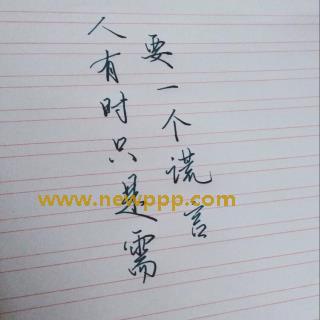 人有时只是需
要一个谎言
www.newppp.com